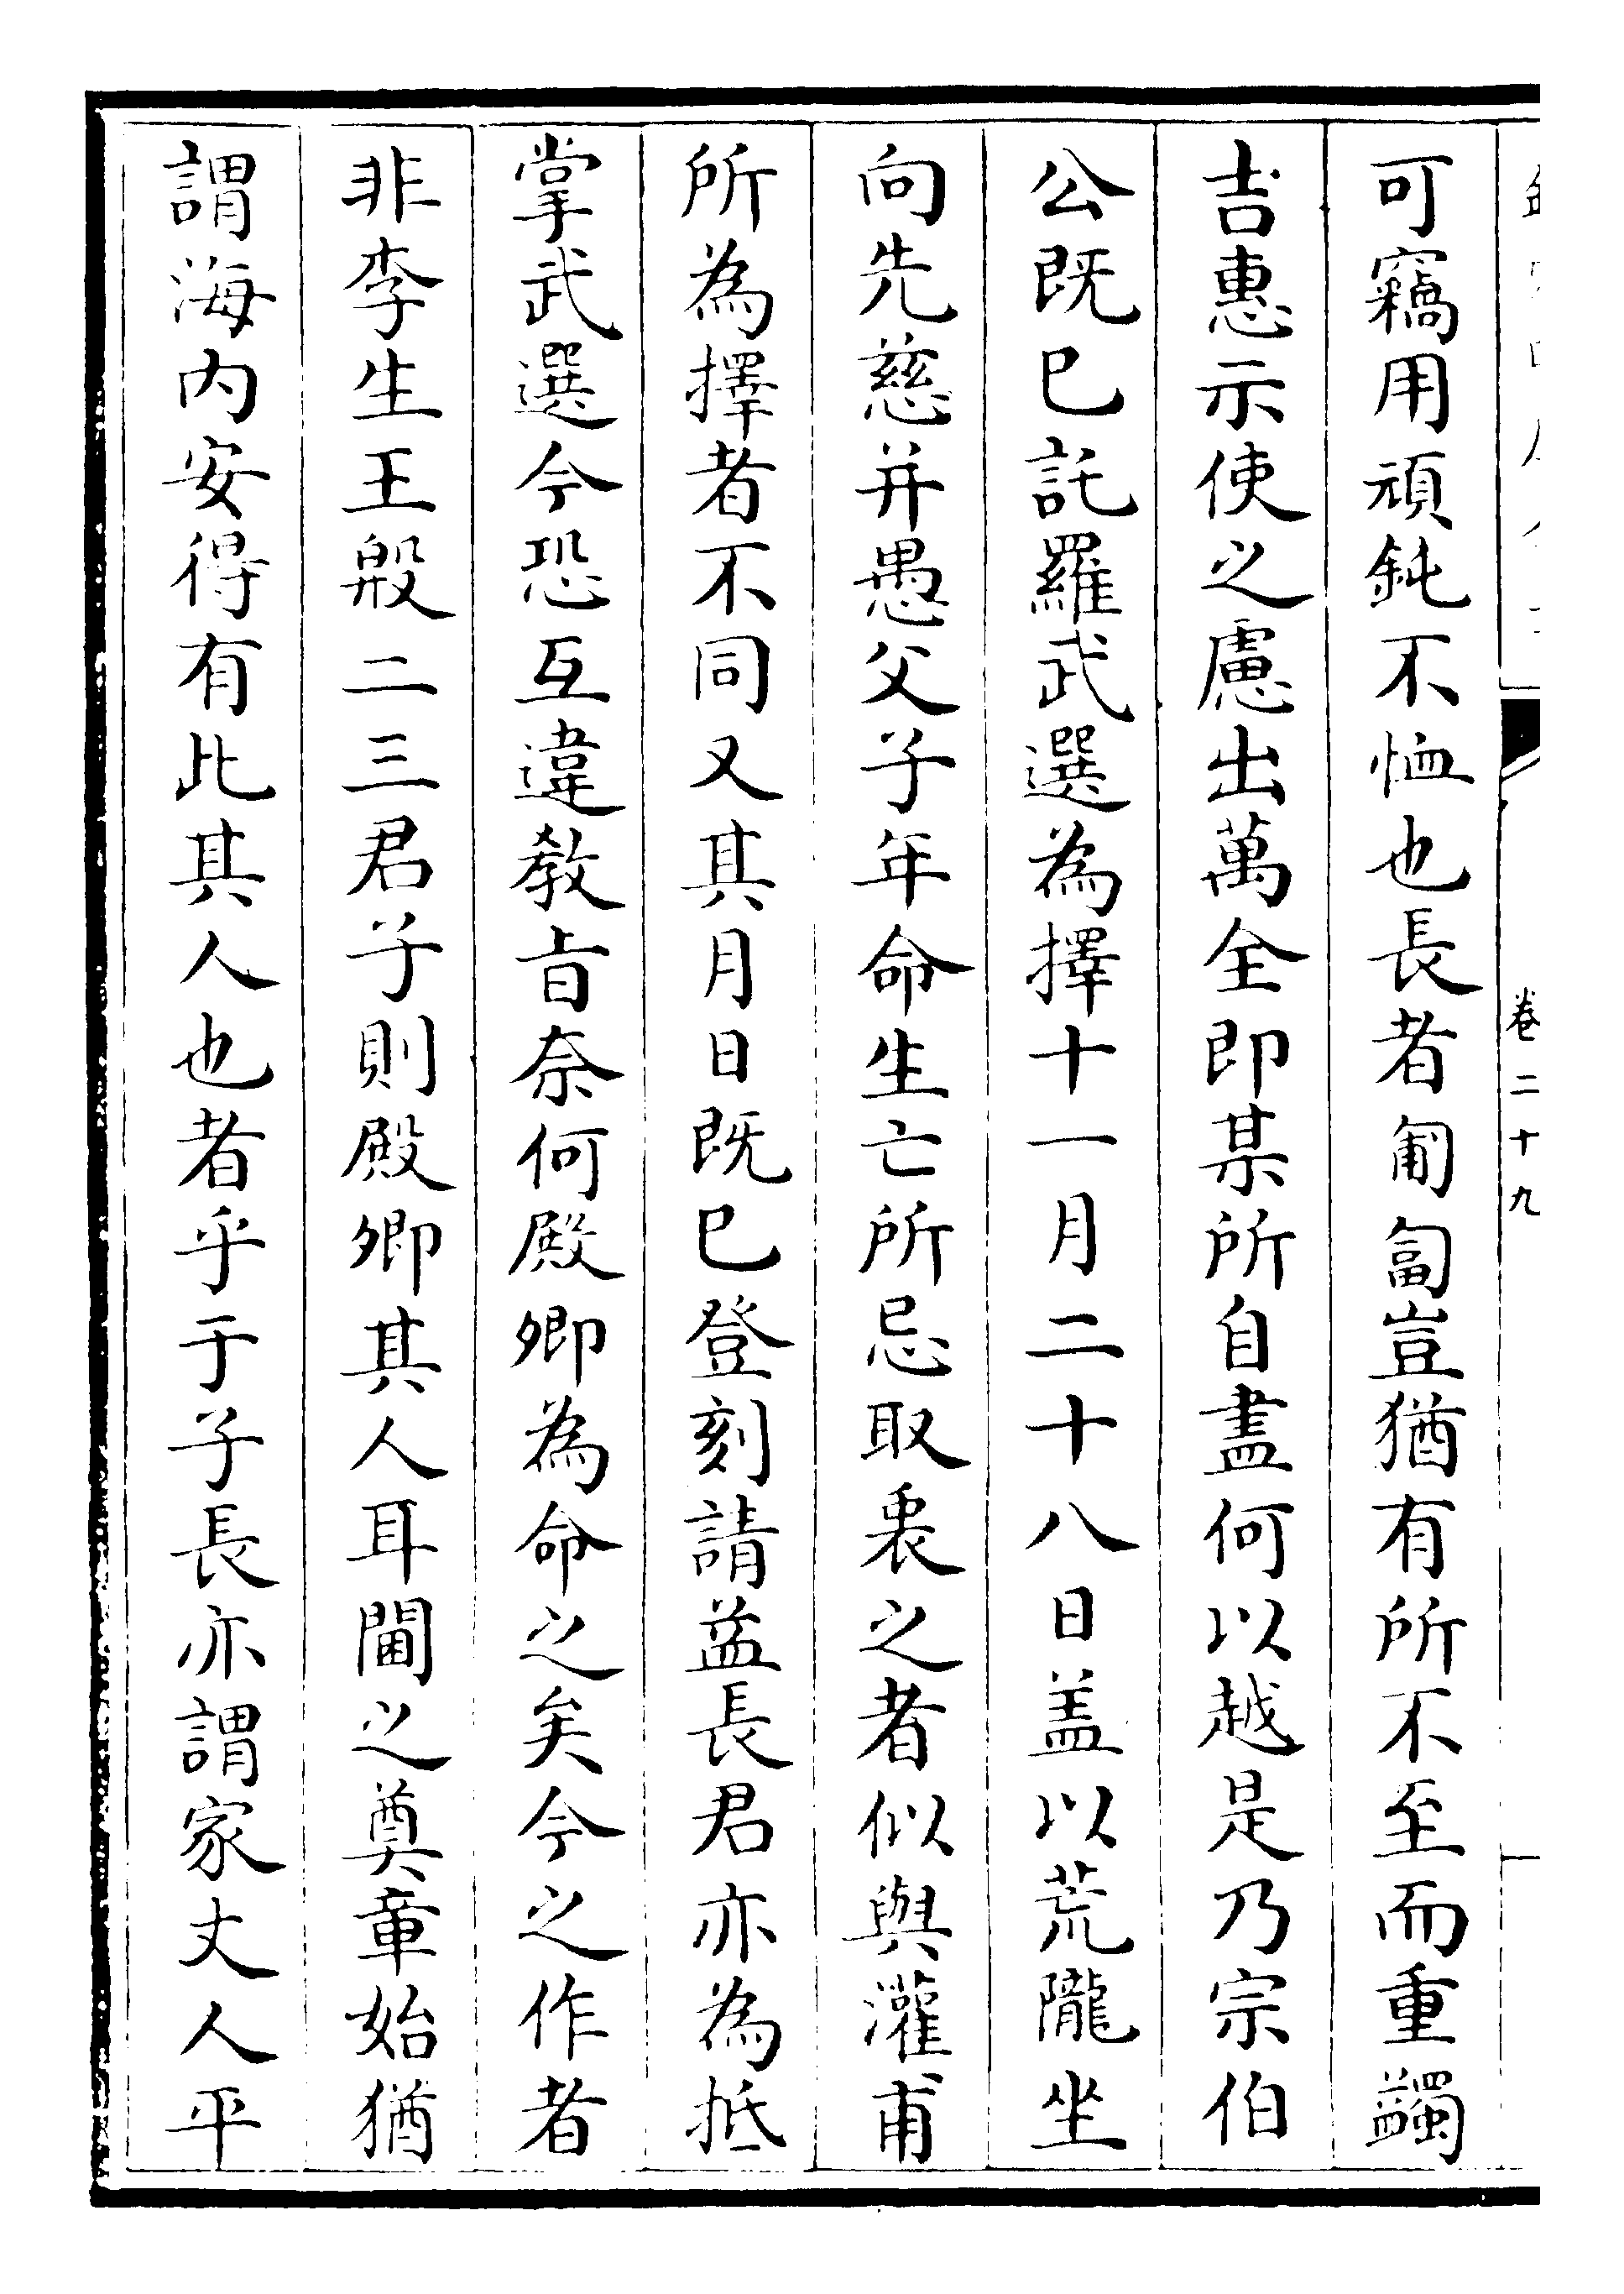 卷二十九
可竊用頑鈍不恤也長者匍匐豈猶有所不至而重蠲
吉惠示使之慮出萬全即某所自盡何以越是乃宗伯
公既已託羅武選為擇十一月二十八日盖以荒隴坐
向先慈并愚父子年命生亡所忌取裒之者似與灌甫
所為擇者不同又其月日既已登刻請益長君亦為抵
掌武選今恐互違敎旨奈何殿卿為命之矣今之作者
非李生王殷二三君子則殿卿其人耳閫之奠章始猶
謂海内安得有此其人也者乎于子長亦謂家丈人平